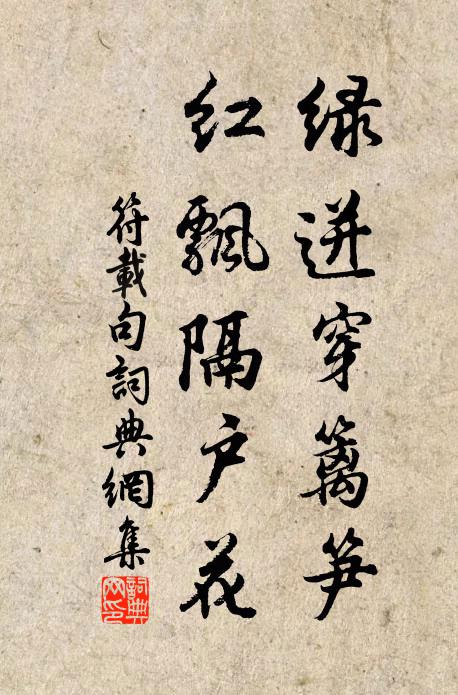 绿迸穿篱笋
红飘隔户花
符載句詞典網集
詞典网印